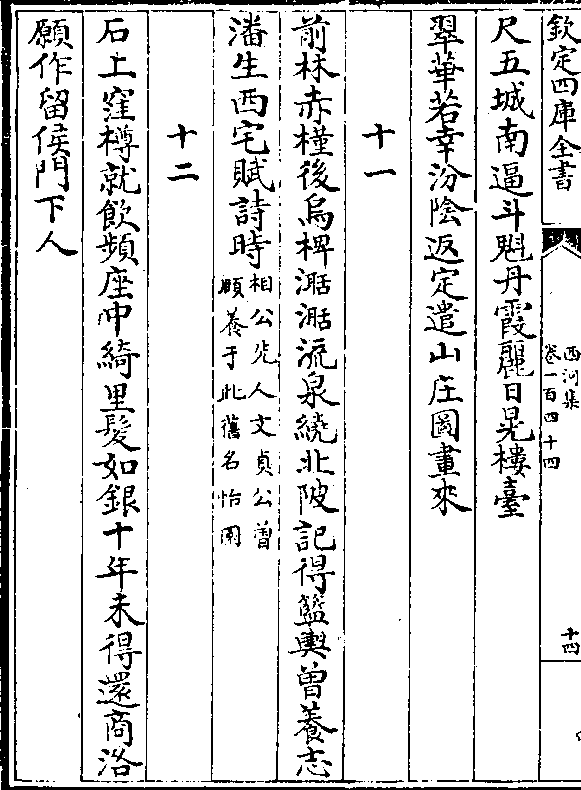 欽定四庫全書
西河集
卷一百四十四
十四
尺五城南逼斗魁丹霞麗日晃樓臺
翠華若幸汾陰返定遣山庄圖畫來
十一
前林赤槿後烏椑湉湉流泉繞北陂記得籃輿曾養志
潘生西宅賦詩時相公先人文貞公曽
頤養于此舊名怡園
十二
石上窪樽就飲頻座中綺里髮如銀十年未得還商洛
願作留侯門下人